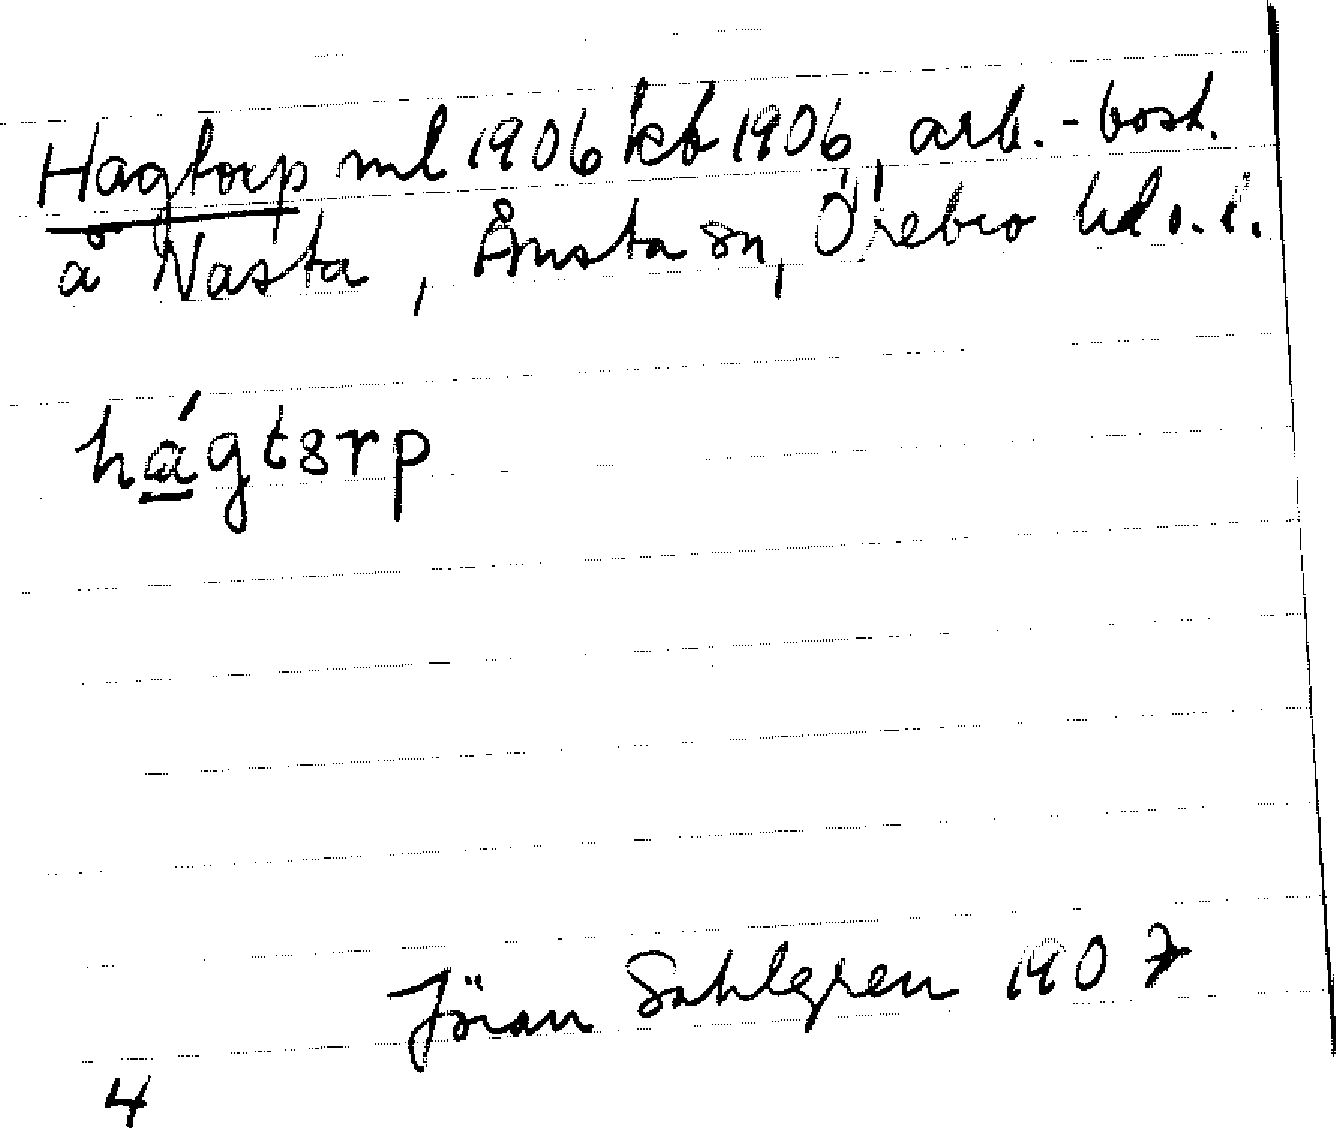 Hagtorp ml 1906 kb 1906, arb.-bost.
å Nasta, Ånsta sn, Örebro hd o. l.
hágtȣrp
Jöran Sahlgren 1907
4